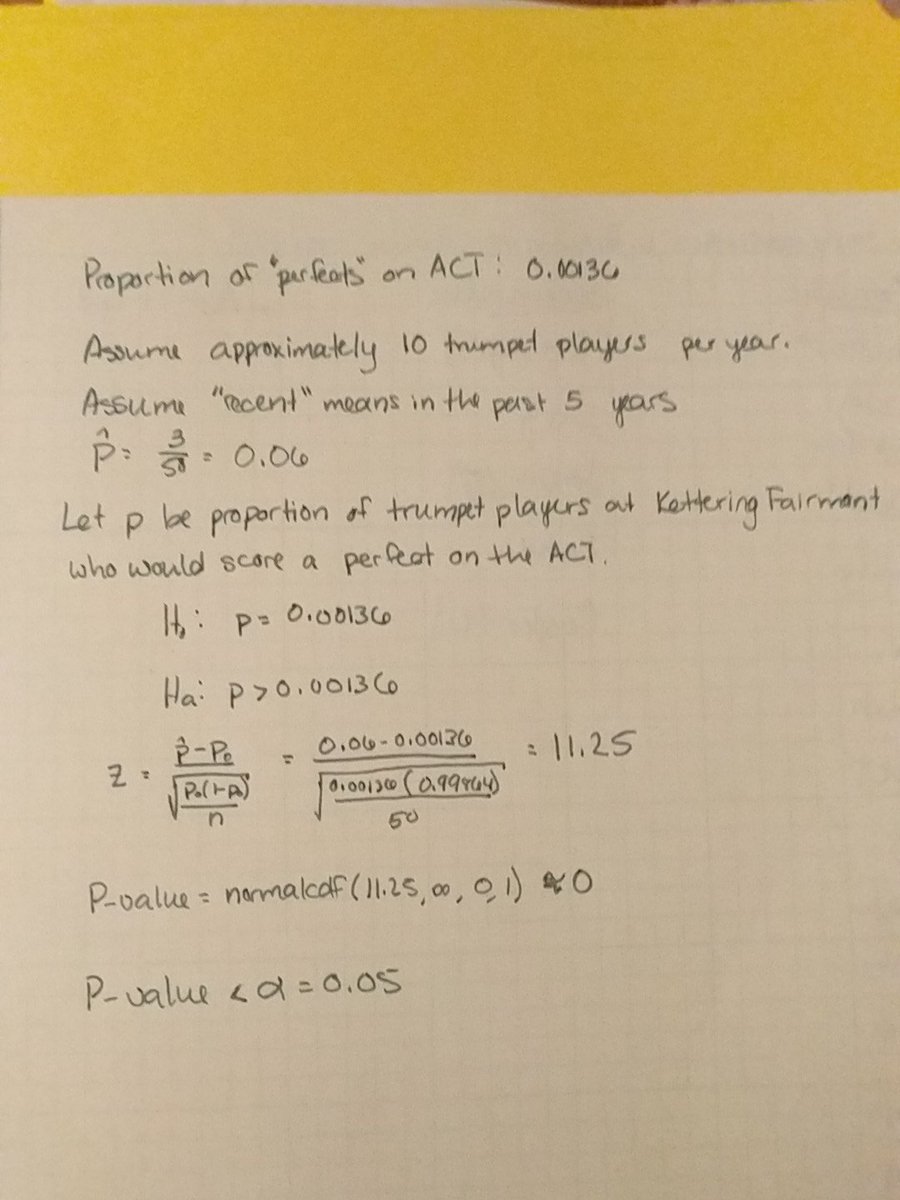 Proportion of "perfects" on ACT: 0.00136
Assume approximately 10 trumpet players per year.
Assume "recent" means in the past 5 years
p̂ = 3/50 = 0.06
Let p be proportion of trumpet players at Kettering Fairmont
who would score a perfect on the ACT.
H₀: p = 0.00136
Ha: p > 0.00136
z = (p̂ - p₀)/√(p₀(1-p₀)/n) = (0.06 - 0.00136)/√(0.00136(0.99864)/50) = 11.25
P-value = normalcdf(11.25, ∞, 0, 1) ≈ 0
P-value < α = 0.05